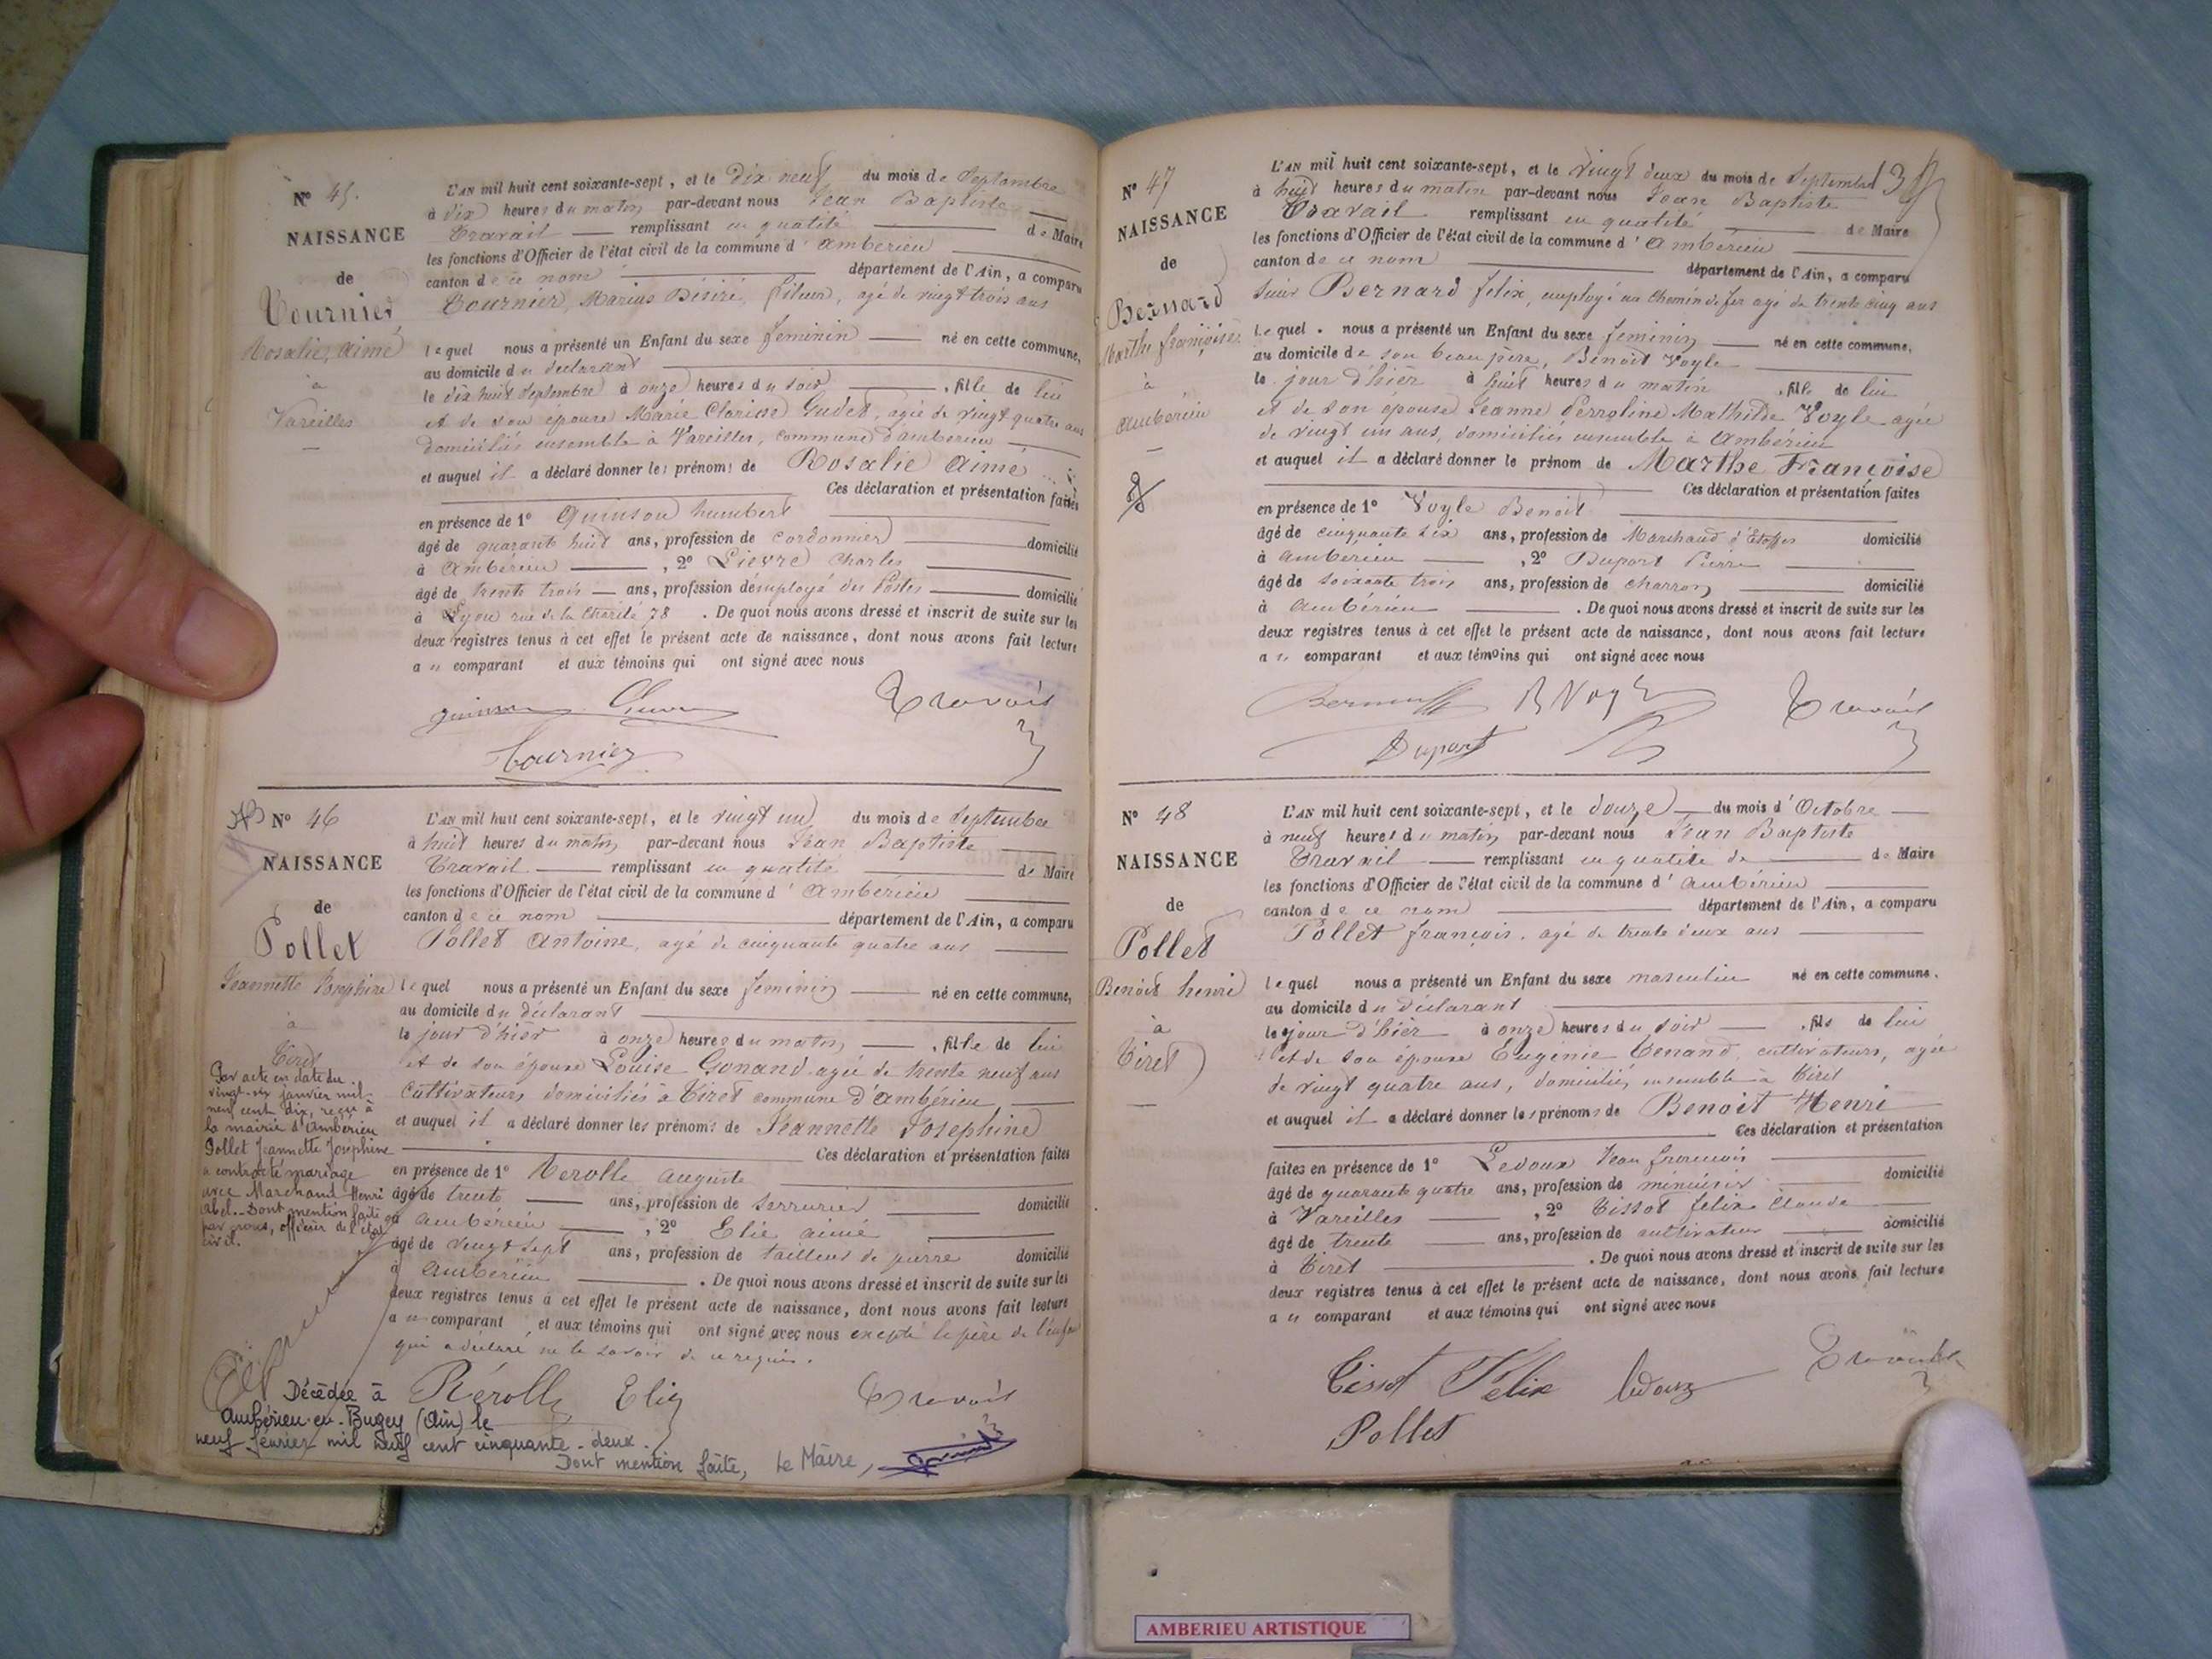 N° 45.
NAISSANCE
de
Tournier
Rosalie, Aimé
à
Vareilles
L'AN mil huit cent soixante-sept, et le Dix neuf du mois de Septembre
à dix heures du matin par-devant nous Jean Baptiste
Travail remplissant en qualité de Maire
les fonctions d'Officier de l'état civil de la commune d'Ambérieu
canton de ce nom département de l'Ain, a comparu
Tournier, Marius Désiré, fileur, agé de vingt trois ans
lequel nous a présenté un Enfant du sexe feminin né en cette commune,
au domicile du déclarant
le dix huit Septembre à onze heures du soir, fille de lui
et de son épouse Marie Clarisse Gudet, agée de vingt quatre ans
domiciliés ensemble à Vareilles, commune d'ambérieu
et auquel il a déclaré donner les prénoms de Rosalie Aimé
Ces déclaration et présentation faites
en présence de 1° Quinson humbert
âgé de quarante huit ans, profession de cordonnier domicilié
à Ambérieu, 2° Lievre Charles
âgé de trente trois ans, profession d'employé des Postes domicilié
à Lyon rue de la Charité 78. De quoi nous avons dressé et inscrit de suite sur les
deux registres tenus à cet effet le présent acte de naissance, dont nous avons fait lecture
au comparant et aux témoins qui ont signé avec nous
Travail
Tournier
N° 46
NAISSANCE
de
Pollet
Jeannette Josephine
à
Tiret
Par acte en date du
vingt-six janvier mil
neuf cent dix, reçu à
la mairie d'Ambérieu
Pollet Jeannette Joséphine
a contracté mariage
avec Marchand Henri
Abel. Dont mention faite
par nous, officier de l'état
civil.
L'AN mil huit cent soixante-sept, et le vingt un du mois de Septembre
à huit heures du matin par-devant nous Jean Baptiste
Travail remplissant en qualité de Maire
les fonctions d'Officier de l'état civil de la commune d'Ambérieu
canton de ce nom département de l'Ain, a comparu
Pollet Antoine, agé de cinquante quatre ans
lequel nous a présenté un Enfant du sexe feminin né en cette commune,
au domicile du déclarant
le jour d'hier à onze heures du matin, fille de lui
et de son épouse Louise Gonand agée de trente neuf ans
Cultivateurs domiciliés à Tiret commune d'Ambérieu
et auquel il a déclaré donner les prénoms de Jeannette Josephine
Ces déclaration et présentation faites
en présence de 1° Rerolle auguste
âgé de trente ans, profession de serrurier domicilié
à ambérieu, 2° Elie aimé
âgé de vingt sept ans, profession de tailleur de pierre domicilié
à Ambérieu. De quoi nous avons dressé et inscrit de suite sur les
deux registres tenus à cet effet le présent acte de naissance, dont nous avons fait lecture
au comparant et aux témoins qui ont signé avec nous excepté le père de l'enfant
qui a déclaré ne le savoir de ce requis.
Rérolle Elie Travail
Décédée à
Ambérieu-en-Bugey (Ain) le
neuf février mil neuf cent cinquante-deux.
Dont mention faite, Le Maire,
N° 47
NAISSANCE
de
Bernard
Marthe françoise
à
Ambérieu
L'AN mil huit cent soixante-sept, et le vingt deux du mois de Septembre
à huit heures du matin par-devant nous Jean Baptiste
Travail remplissant en qualité de Maire
les fonctions d'Officier de l'état civil de la commune d'Ambérieu
canton de ce nom département de l'Ain, a comparu
Bernard felix, employé au chemin de fer agé de trente cinq ans
lequel. nous a présenté un Enfant du sexe feminin né en cette commune.
au domicile de son beau père, Benoit Voyle
le jour d'hier à huit heures du matin, fille de lui
et de son épouse Jeanne Perroline Mathilde Voyle agée
de vingt un ans, domiciliés ensemble à Ambérieu
et auquel il a déclaré donner le prénom de Marthe Françoise
Ces déclaration et présentation faites
en présence de 1° Voyle Benoit
âgé de cinquante six ans, profession de Marchand d'Etoffes domicilié
à Ambérieu, 2° Duport Pierre
âgé de soixante trois ans, profession de charron domicilié
à Ambérieu. De quoi nous avons dressé et inscrit de suite sur les
deux registres tenus à cet effet le présent acte de naissance, dont nous avons fait lecture
au comparant et aux témoins qui ont signé avec nous
Bernard B Voyle Travail
Duport
N° 48
NAISSANCE
de
Pollet
Benoit henri
à
Tiret
L'AN mil huit cent soixante-sept, et le douze du mois d'Octobre
à neuf heures du matin par-devant nous Jean Baptiste
Travail remplissant en qualité de de Maire
les fonctions d'Officier de l'état civil de la commune d'Ambérieu
canton de ce nom département de l'Ain, a comparu
Pollet françois, agé de trente deux ans
lequel nous a présenté un Enfant du sexe masculin né en cette commune.
au domicile du déclarant
le jour d'hier à onze heures du soir, fils de lui
et de son épouse Eugénie Tenand, cultivateurs, agée
de vingt quatre ans, domiciliés ensemble à Tiret
et auquel il a déclaré donner les prénoms de Benoit Henri
Ces déclaration et présentation
faites en présence de 1° Ledoux Jean francois
âgé de quarante quatre ans, profession de menuisier domicilié
à Vareilles, 2° Tissot felix Claude
âgé de trente ans, profession de cultivateur domicilié
à Tiret. De quoi nous avons dressé et inscrit de suite sur les
deux registres tenus à cet effet le présent acte de naissance, dont nous avons fait lecture
au comparant et aux témoins qui ont signé avec nous
Tissot Félix Ledoux Travail
Pollet
AMBERIEU ARTISTIQUE